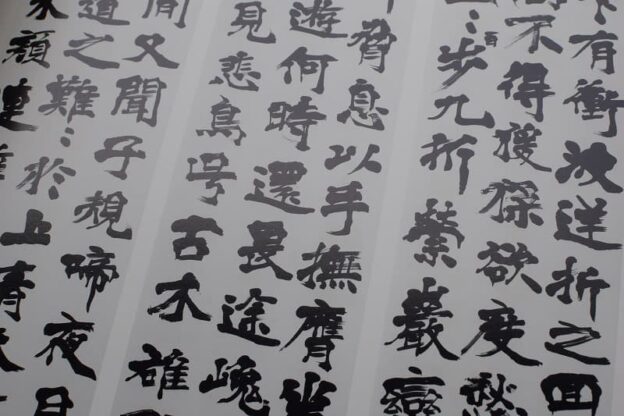 有衝波逆折之回
不得猨猱欲度愁
步九折縈巖巒
脅息以手撫膺坐
遊何時還畏途巉
見悲鳥号古木雄
間又聞子規啼夜月
道之難〻於上青天
朱顏連